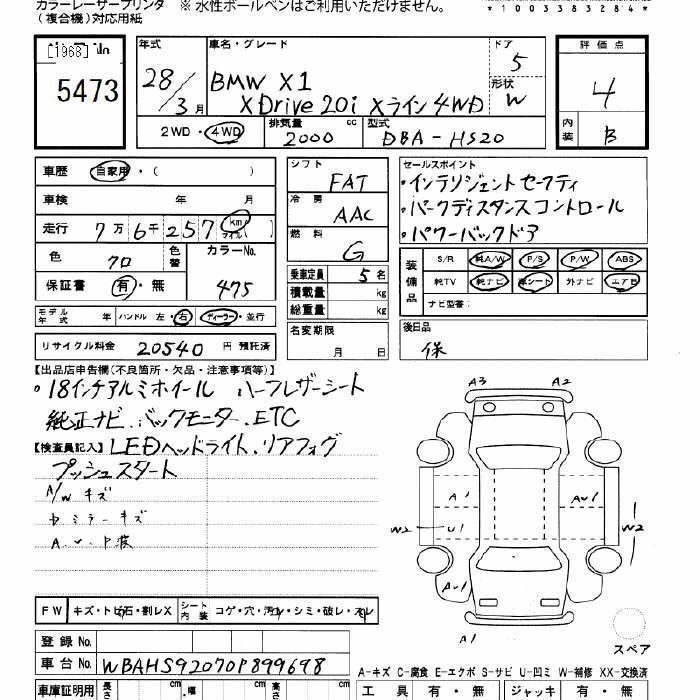 カラーレーザープリンタ ※ 水性ボールペンはご利用いただけません。
(複合機)対応用紙
*1003383284*
[1968]
5473
年式
28/3月
車名・グレード
BMW X1
XDrive 20i Xライン 4WD
ドア
5
形状
W
評価点
4
内装
B
2WD・4WD
排気量 cc
2000
型式
DBA-HS20
車歴 自家用・( )
車検 年 月
走行 7万6千257 km マイル ( )
色 クロ 色替
カラーNo. 475
保証書 有・無
モデル年式 年 ハンドル 左・右 ディーラー・並行
リサイクル料金 20540 円 預託済
シフト FAT
冷房 AAC
燃料 G
乗車定員 5名
積載量 kg
総重量 kg
名変期限
月 日
セールスポイント
・インテリジェントセーフティ
・パークディスタンスコントロール
・パワーバックドア
装備品
S/R 純A/W P/S P/W ABS
純TV 純ナビ 革シート 外ナビ エアB
ナビ型番:
後日品
保
【出品店申告欄(不良箇所・欠品・注意事項等)】
。18インチアルミホイール ハーフレザーシート
純正ナビ.バックモニター.ETC
【検査員記入】LEDヘッドライト.リアフォグ
プッシュスタート
A/W キズ
ミラーキズ
FW キズ・トビ石・割レX シート内装 コゲ・穴・汚レ・シミ・破レ・スレ
登録No.
車台No. WBAHS92070P899698
車庫証明用 長さ cm ・幅 cm cm
A3 A2
A1 AU1
W2 U1 W2
AU1
A1
スペア
A-キズ C-腐食 E-エクボ S-サビ U-凹ミ W-補修 XX-交換済
工具 有・無 ジャッキ 有・無